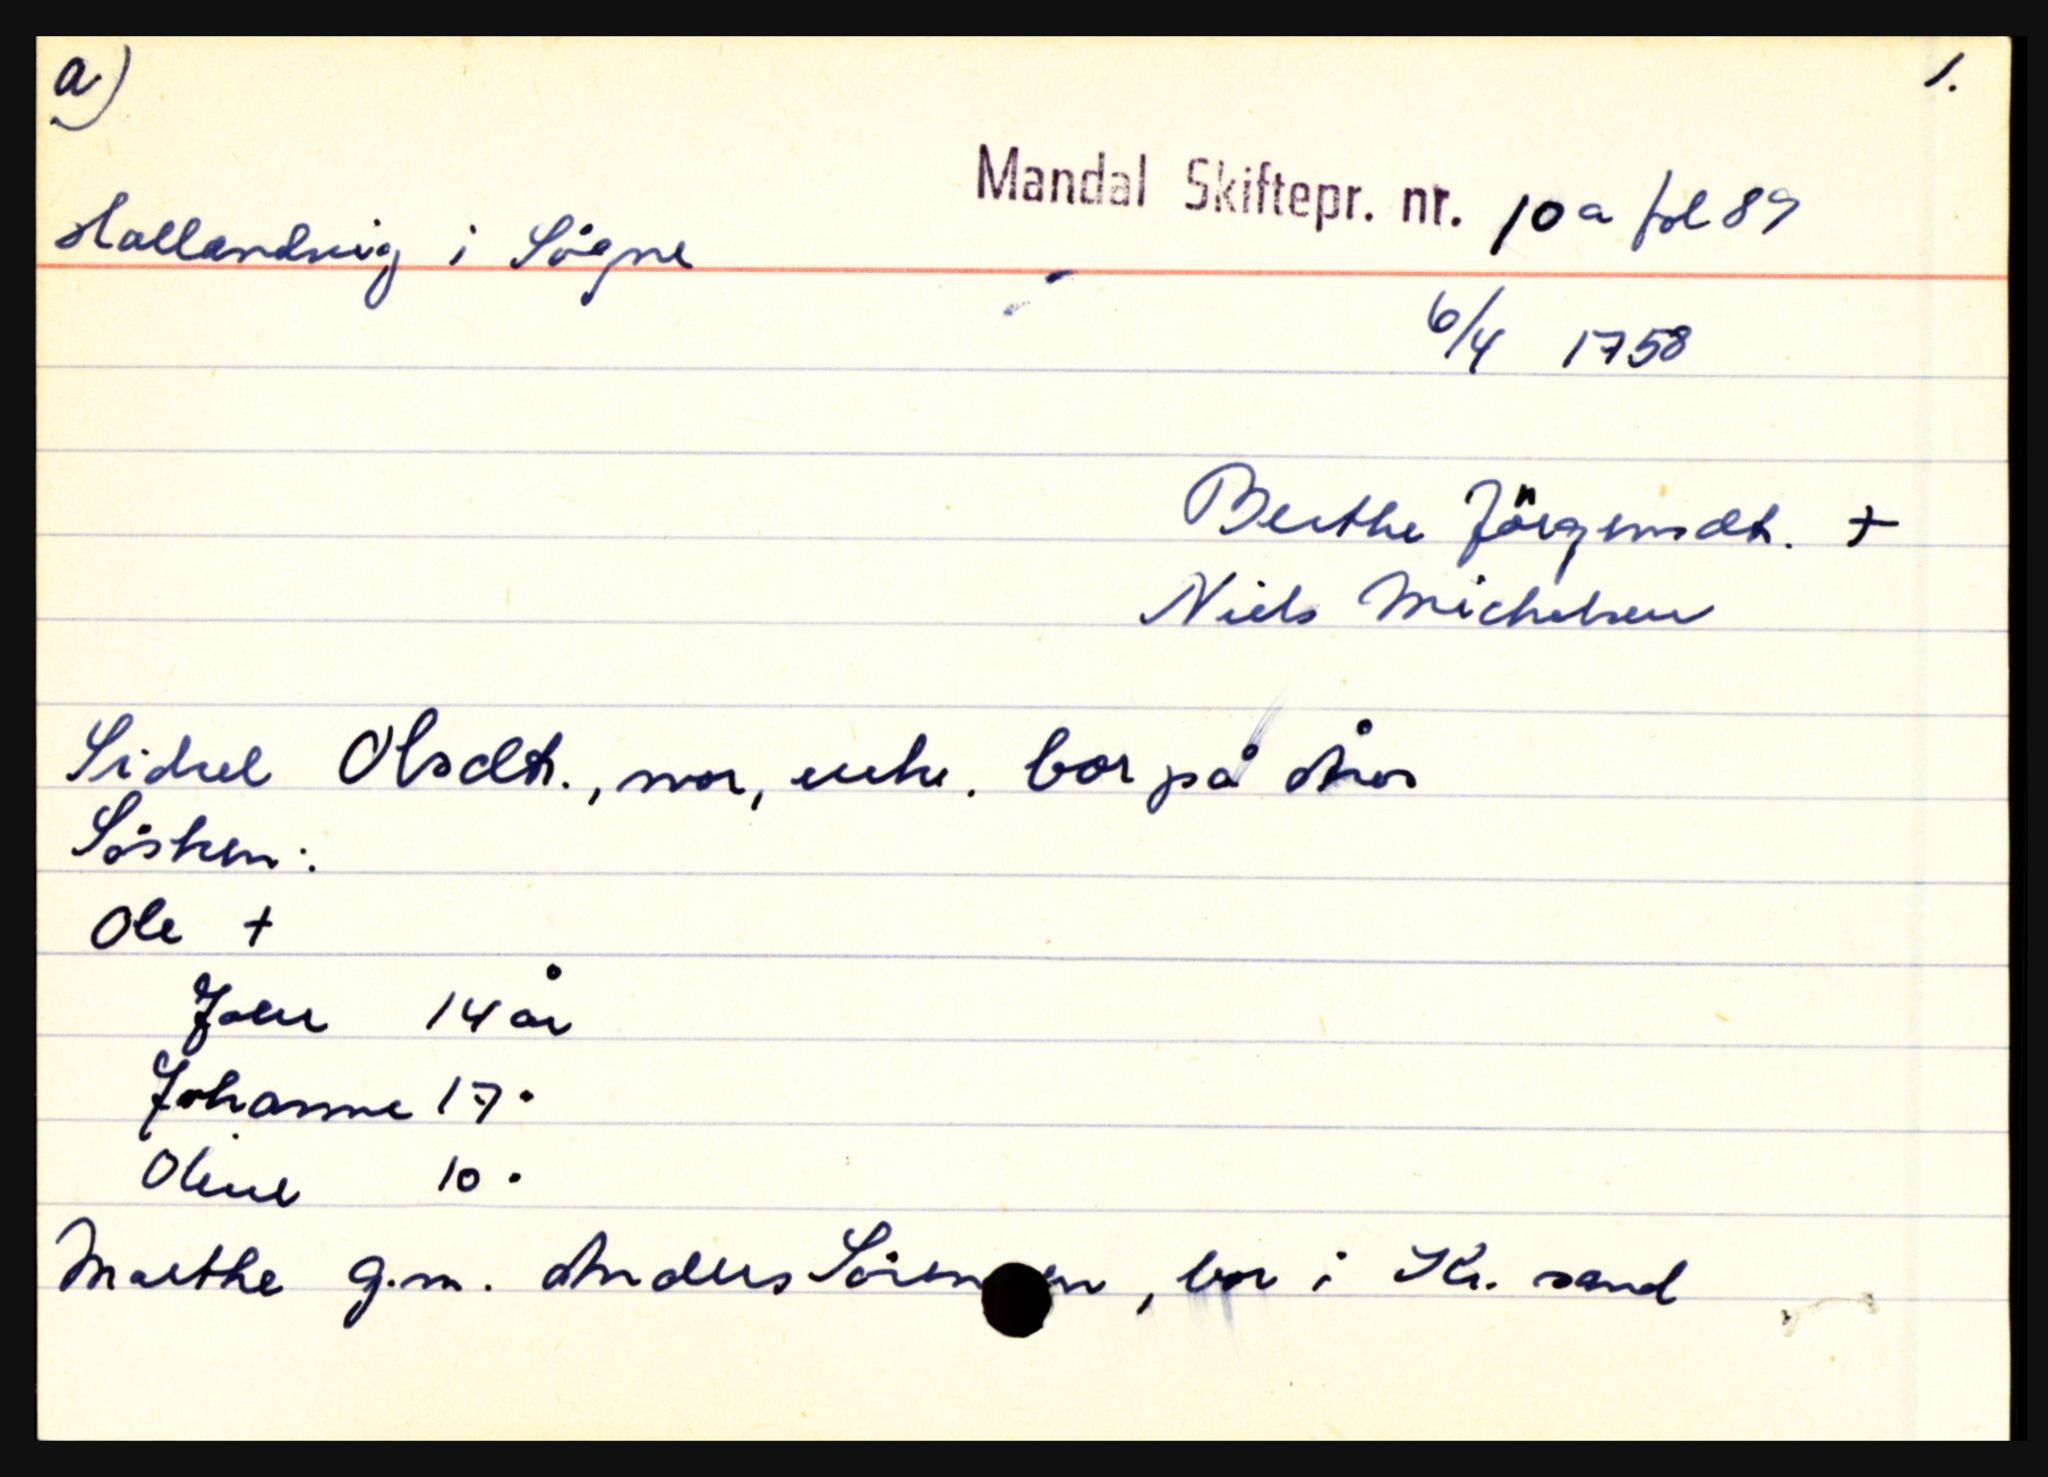 a) 1.
Mandal Skiftepr. nr. 10a fol 89
Hallandvig i Søgne
6/4 1758
Berthe Jörgensdtr. +
Niels Michelsen
Sidsel Olsdtr., mor, enke. bor på Åros
Søsken:
Ole +
Joen 14 år
Johanne 17 "
Oline 10 "
Marthe g.m. Anders Sørensen, bor i Kr. sand